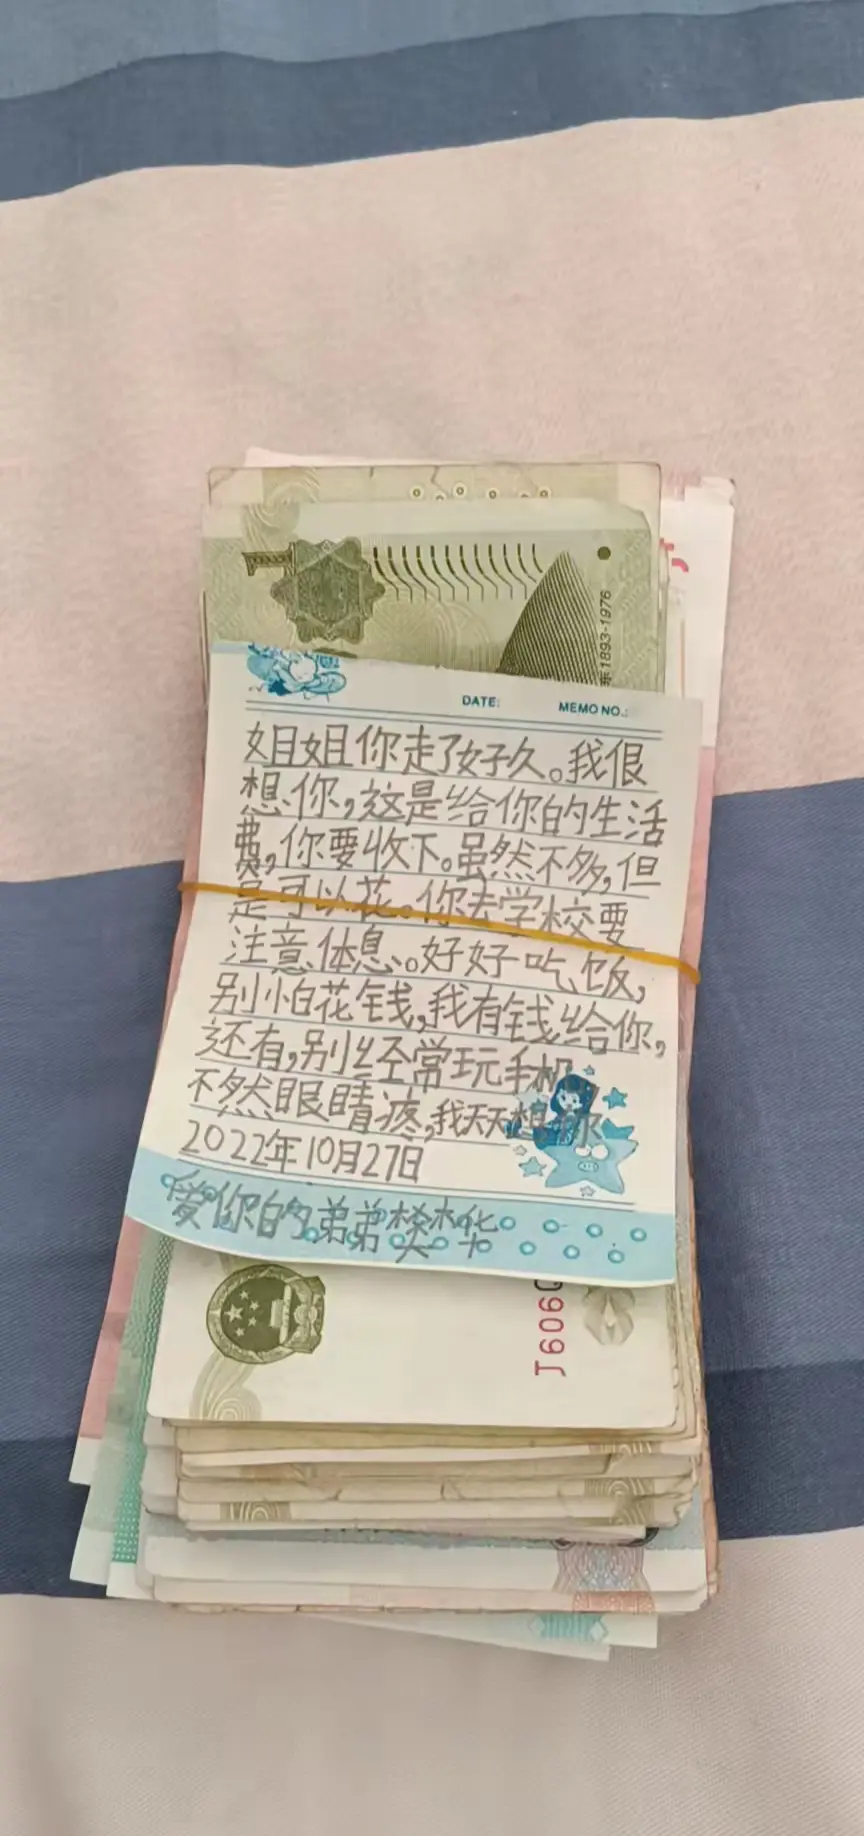 1893-1976
DATE: MEMO NO.:
姐姐你走了好久。我很
想你,这是给你的生活
费,你要收下。虽然不多,但
是可以花。你去学校要
注意,休息。好好吃饭,
别怕花钱,我有钱给你,
还有,别经常玩手机,
不然眼睛疼,我天天想你
2022年10月27日
爱你的弟弟樊华
J606